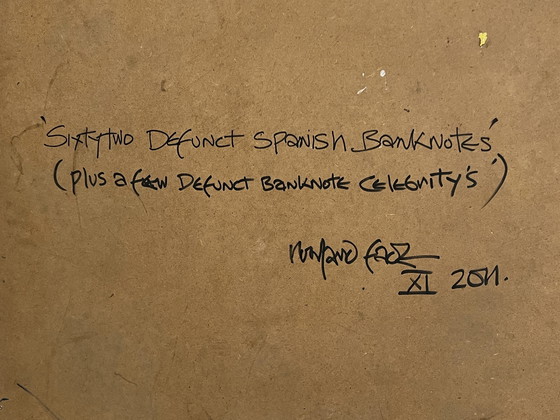 'Sixtytwo Defunct Spanish Banknotes'
(plus a few Defunct Banknote Celebrity's')
XI 2011.